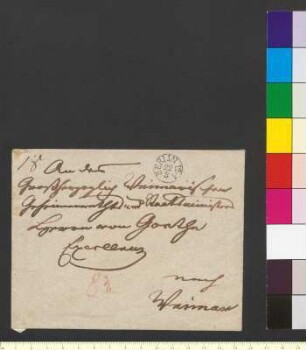 An des
Großherzoglich Weimarischen
Geheimenraths und Staatsministers
Herren von Goethe
Excellenz
nach
Weimar
BERLIN